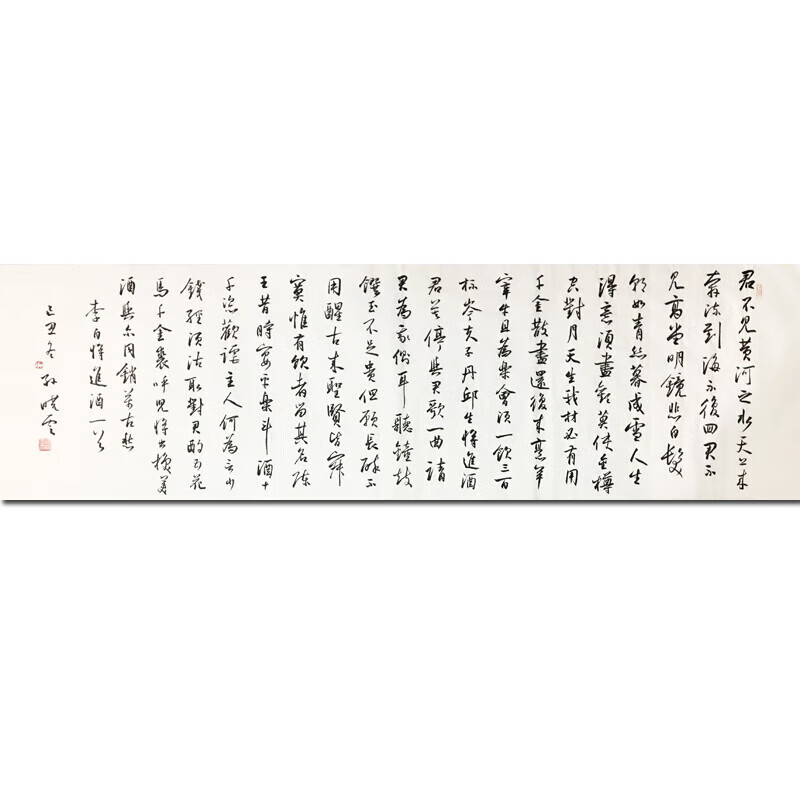 君不見黄河之水天上来
奔流到海不復回君不
見高堂明鏡悲白髮
朝如青絲暮成雪人生
得意須盡歡莫使金樽
空對月天生我材必有用
千金散盡還復来烹羊
宰牛且為樂會須一飲三百
杯岑夫子丹邱生将進酒
君莫停與君歌一曲請
君為我傾耳聽鐘鼓
饌玉不足貴但願長醉不
用醒古来聖賢皆寂
寞惟有飲者留其名陳
王昔時宴平樂斗酒十
千恣歡謔主人何為言少
錢經須沽取對君酌五花
馬千金裘呼兒将出換美
酒與尓同銷萬古愁
李白将進酒一首
己丑冬 孙曉雲